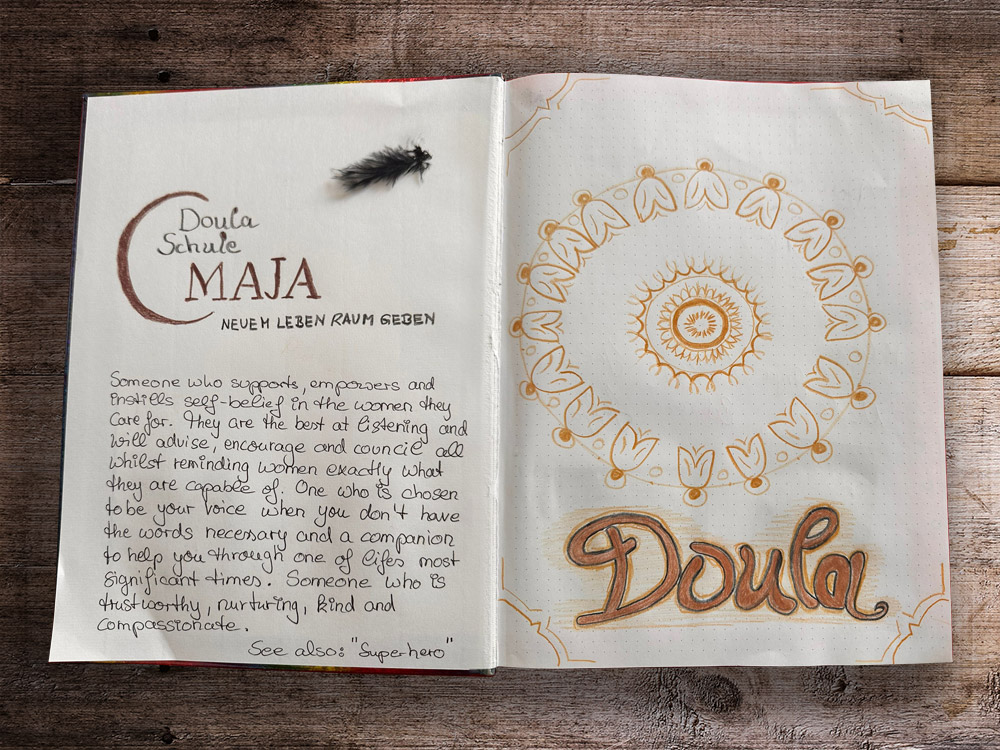 Doula
Schule
MAJA
NEUEM LEBEN RAUM GEBEN
Someone who supports, empowers and
instills self-belief in the women they
care for. They are the best at listening and
will advise, encourage and council all
whilst reminding women exactly what
they are capable of. One who is chosen
to be your voice when you don't have
the words necessary and a companion
to help you through one of lifes most
significant times. Someone who is
trustworthy, nurturing, kind and
compassionate.
See also: "Superhero"
Doula